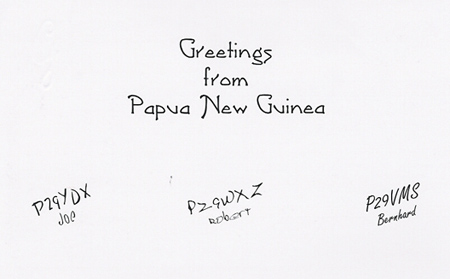 Greetings
from
Papua New Guinea
P29YDX
Joe
P29WXZ
Robert
P29VMS
Bernhard